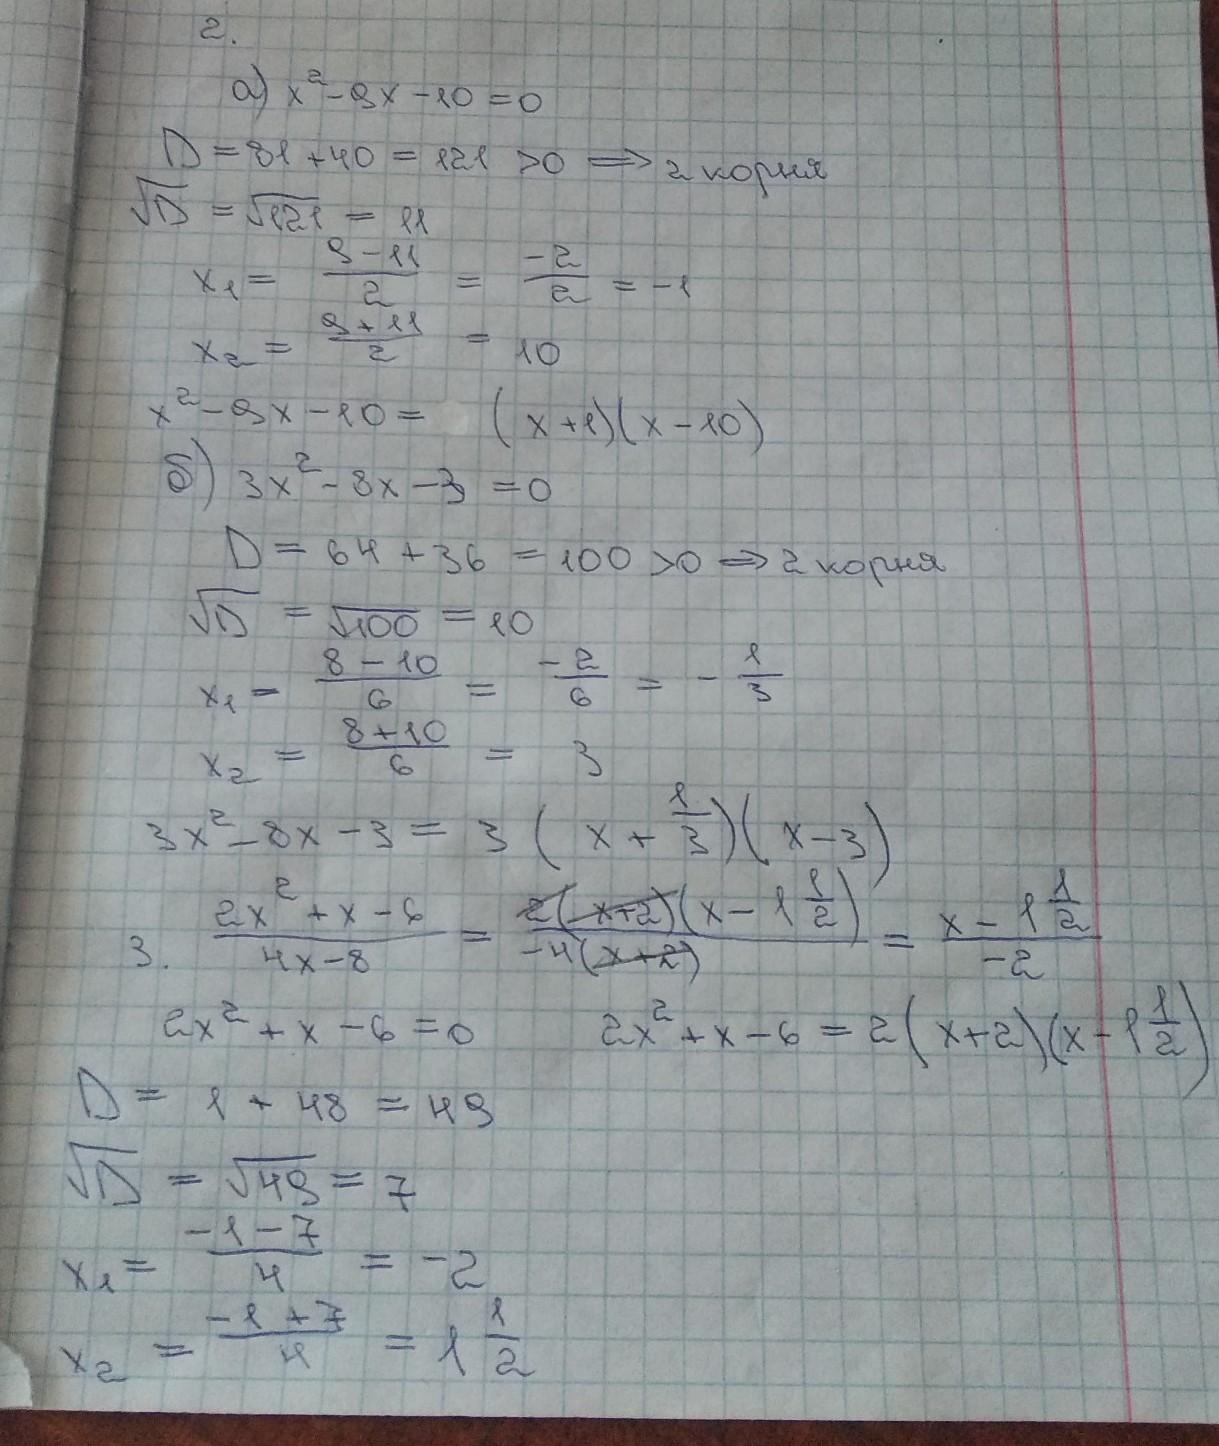 2.
а) x² - 9x - 10 = 0
D = 81 + 40 = 121 > 0 ⟹ 2 корня
√D = √121 = 11
x₁ = (9 - 11)/2 = -2/2 = -1
x₂ = (9 + 11)/2 = 10
x² - 9x - 10 = (x + 1)(x - 10)
б) 3x² - 8x - 3 = 0
D = 64 + 36 = 100 > 0 ⟹ 2 корня
√D = √100 = 10
x₁ = (8 - 10)/6 = -2/6 = -1/3
x₂ = (8 + 10)/6 = 3
3x² - 8x - 3 = 3(x + 1/3)(x - 3)
3. (2x² + x - 6)/(4x - 8) = 2(x+2)(x - 1 1/2)/(-4(x+2)) = (x - 1 1/2)/(-2)
2x² + x - 6 = 0 2x² + x - 6 = 2(x+2)(x - 1 1/2)
D = 1 + 48 = 49
√D = √49 = 7
x₁ = (-1 - 7)/4 = -2
x₂ = (-1 + 7)/4 = 1 1/2